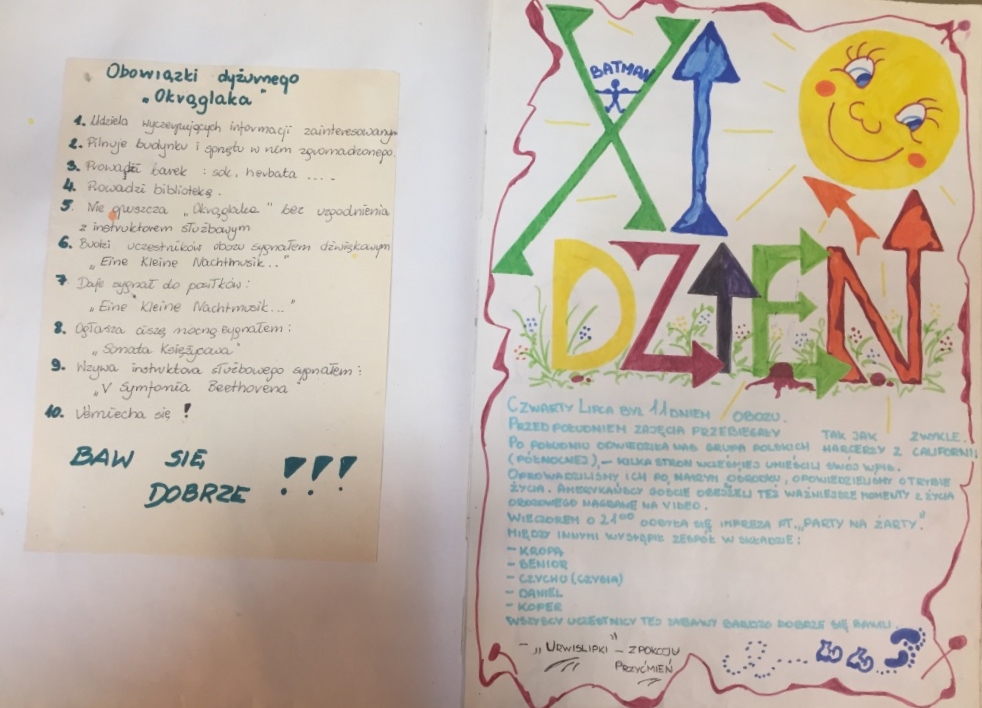 Obowiązki dyżurnego
„Okrąglaka"
1. Udziela wyczerpujących informacji zainteresowanym
2. Pilnuje budynku i sprzętu w nim zgromadzonego.
3. Prowadzi barek : sok, herbata ....
4. Prowadzi bibliotekę.
5. Nie opuszcza „Okrąglaka" bez uzgodnienia
z instruktorem służbowym
6. Budzi uczestników obozu sygnałem dźwiękowym
„Eine Kleine Nachtmusik.."
7. Daje sygnał do posiłków :
„Eine Kleine Nachtmusik..."
8. Ogłasza ciszę nocną sygnałem :
„Sonata Księżycowa"
9. Wzywa instruktora służbowego sygnałem :
„V Symfonia Beethovena
10. Uśmiecha się !
BAW SIĘ
DOBRZE !!!
XI
BATMAN
DZIEŃ
CZWARTY LIPCA BYŁ 11 DNIEM OBOZU.
PRZED POŁUDNIEM ZAJĘCIA PRZEBIEGAŁY TAK JAK ZWYKLE.
PO POŁUDNIU ODWIEDZIŁA NAS GRUPA POLSKICH HARCERZY Z CALIFORNII
(PÓŁNOCNEJ), – KILKA STRON WCZEŚNIEJ UMIEŚCILI SWÓJ WPIS.
OPROWADZILIŚMY ICH PO NASZYM OŚRODKU, OPOWIEDZIELIŚMY O TRYBIE
ŻYCIA. AMERYKAŃSCY GOŚCIE OBEJŻELI TEŻ WAŻNIEJSZE MOMENTY Z ŻYCIA
OBOZOWEGO NAGRANE NA VIDEO.
WIECZOREM O 21⁰⁰ ODBYŁA SIĘ IMPREZA PT. „PARTY NA ŻARTY".
MIĘDZY INNYMI WYSTĄPIŁ ZESPÓŁ W SKŁADZIE :
– KROPA
– SENIOR
– CZYCHU (CZYSIA)
– DANIEL
– KOPER
WSZYSCY UCZESTNICY TEJ ZABAWY BARDZO DOBRZE SIĘ BAWILI.
– „URWISLIPKI" – Z POKOJU
PRZYĆMIEŃ